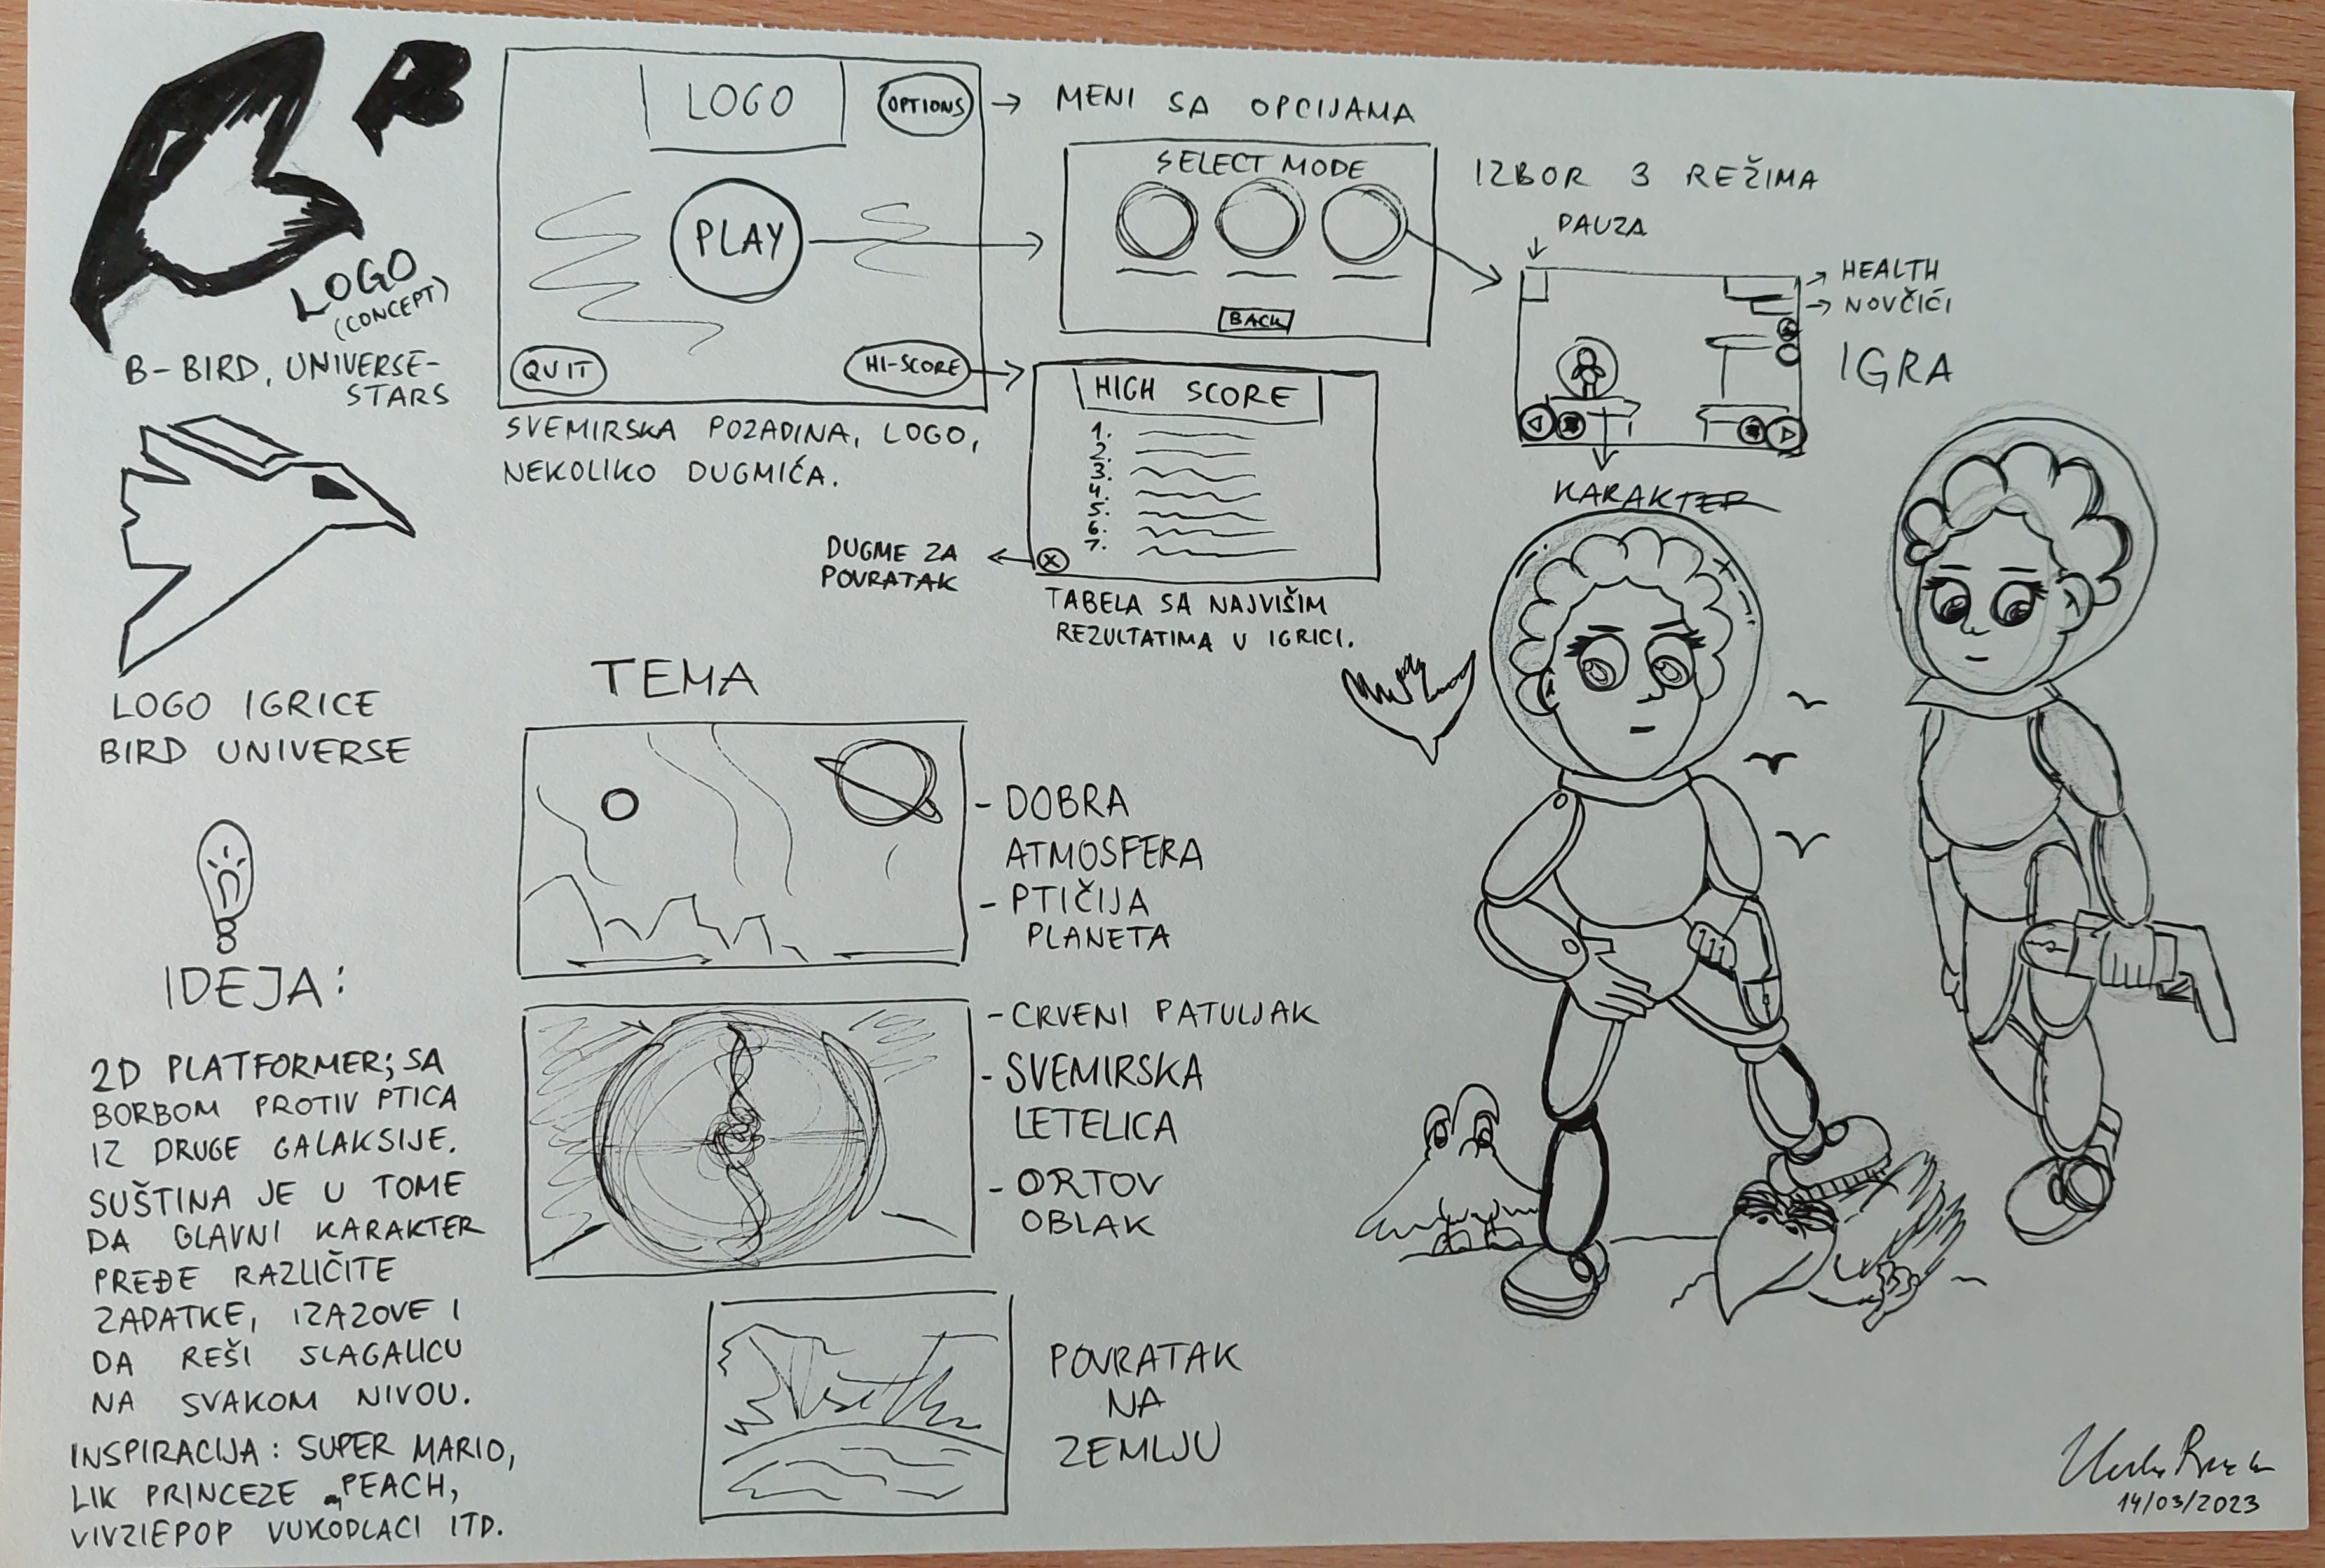 LOGO
(CONCEPT)
B-BIRD, UNIVERSE-
STARS
LOGO IGRICE
BIRD UNIVERSE
IDEJA:
2D PLATFORMER; SA
BORBOM PROTIV PTICA
IZ DRUGE GALAKSIJE.
SUŠTINA JE U TOME
DA GLAVNI KARAKTER
PREĐE RAZLIČITE
ZADATKE, IZAZOVE I
DA REŠI SLAGALICU
NA SVAKOM NIVOU.
INSPIRACIJA: SUPER MARIO,
LIK PRINCEZE PEACH,
VIVZIEPOP VUKODLACI ITD.
LOGO
OPTIONS
MENI SA OPCIJAMA
PLAY
QUIT
HI-SCORE
SVEMIRSKA POZADINA, LOGO,
NEKOLIKO DUGMIĆA.
SELECT MODE
BACK
IZBOR 3 REŽIMA
HIGH SCORE
1.
2.
3.
4.
5.
6.
7.
X
DUGME ZA
POVRATAK
TABELA SA NAJVIŠIM
REZULTATIMA U IGRICI.
PAUZA
HEALTH
NOVČIĆI
IGRA
KARAKTER
TEMA
- DOBRA
ATMOSFERA
- PTIČIJA
PLANETA
- CRVENI PATULJAK
- SVEMIRSKA
LETELICA
- ORTOV
OBLAK
POVRATAK
NA
ZEMLJU
14/03/2023